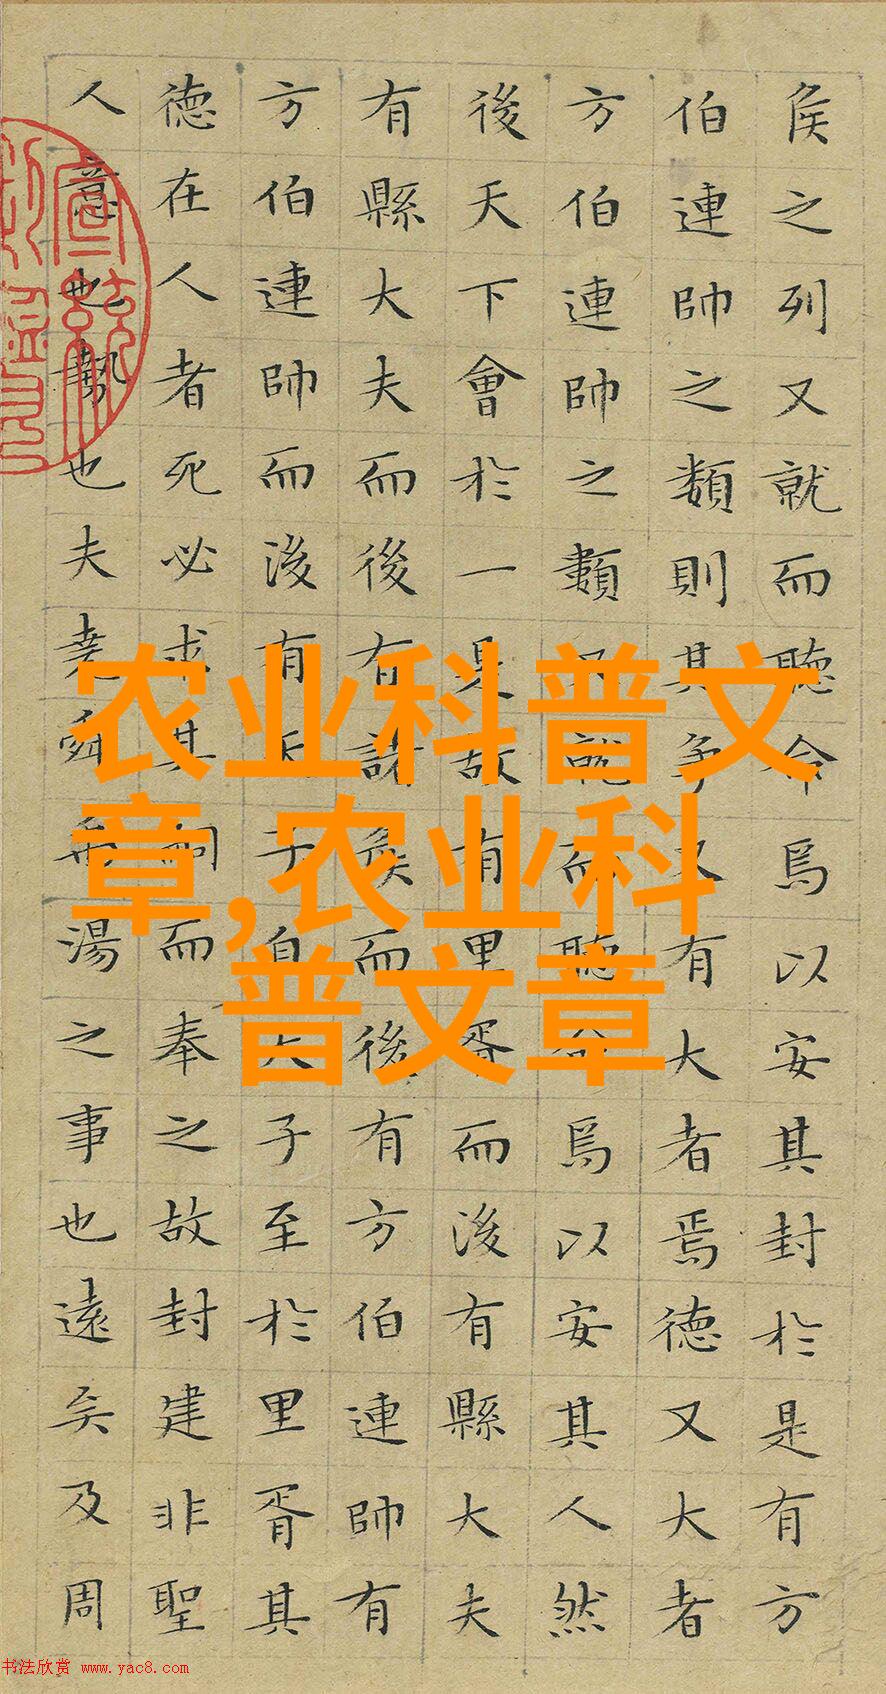 侯之列又就而聽命焉以安其封於是有方
伯連帥之類則其爭又有大者焉德又大者
方伯連帥之類又就而聽命焉以安其人然
後天下會於一是故有里胥而後有縣大夫
有縣大夫而後有諸侯而後有方伯連帥有
方伯連帥而後有天子自天子至於里胥其
德在人者死必求其嗣而奉之故封建非聖
人意也勢也夫堯舜禹湯之事也遠矣及周
农业科普文
章,农业科
普文章
书法欣赏 www.yac8.com